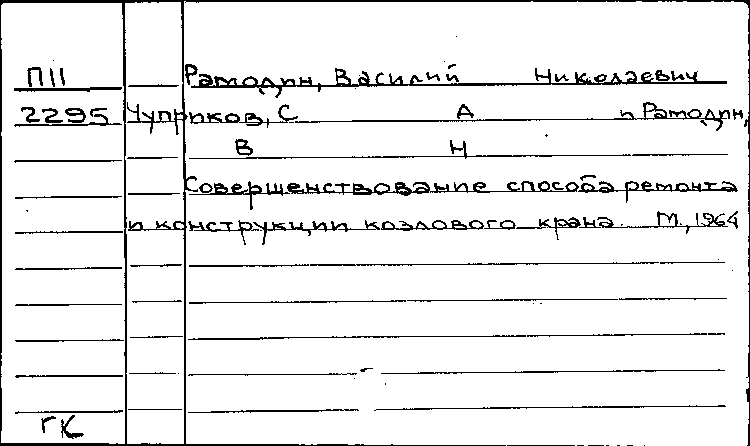 П11 Рамодин, Василий Николаевич
2295 Чуприков, С А и Рамодин,
В Н
Совершенствование способа ремонта
и конструкции козлового крана. М., 1964
ГК